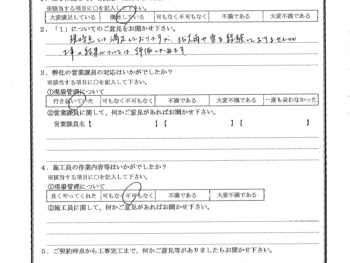 ※該当する項目に○を記入して下さい。
大変満足している 満足している 可もなく不可もなく 不満である 大変不満である
2.「1」についてのご意見をお聞かせ下さい。
3.弊社の営業議員の対応はいかがでしたか？
※該当する項目に○を記入して下さい。
①現場管理について
行き届いていた 可もなく不可もなく 不満である 大変不満である 一度も会わなかった
②営業議員に関して、何かご意見があればお聞かせ下さい。
営業議員名【 】【 】【 】
4.施工員の作業内容等はいかがでしたか？
※該当する項目に○を記入して下さい。
①現場管理について
良くやってくれた 可もなく不可もなく 不満である 大変不満である
②施工員に関して、何かご意見があればお聞かせ下さい。
5.ご契約時点から工事完工まで、何かご意見等がありましたらお聞かせ下さい。